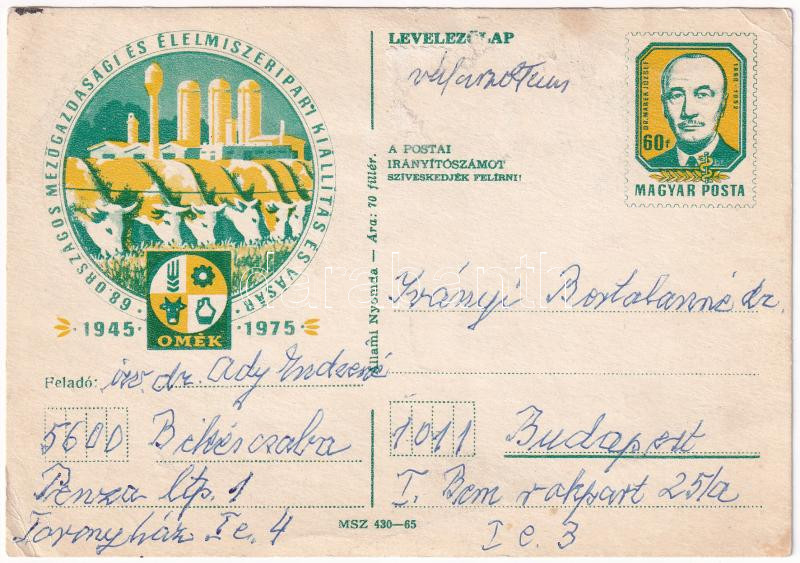 68. ORSZÁGOS MEZŐGAZDASÁGI ÉS ÉLELMISZERIPARI KIÁLLÍTÁS ÉS VÁSÁR
1945 · OMÉK · 1975
Feladó: özv. dr. Ady Endréné
5600 Békéscsaba
Penza ltp. 1
Toronyház I e. 4
Állami Nyomda — Ára: 70 fillér.
LEVELEZŐLAP
A POSTAI
IRÁNYÍTÓSZÁMOT
SZÍVESKEDJÉK FELÍRNI!
DR. MAREK JÓZSEF
1868-1952
60f
MAGYAR POSTA
Iványi Bertalanné dr.
1011 Budapest
I. Bem rakpart 25/a
I e. 3
MSZ 430—65
darabanth